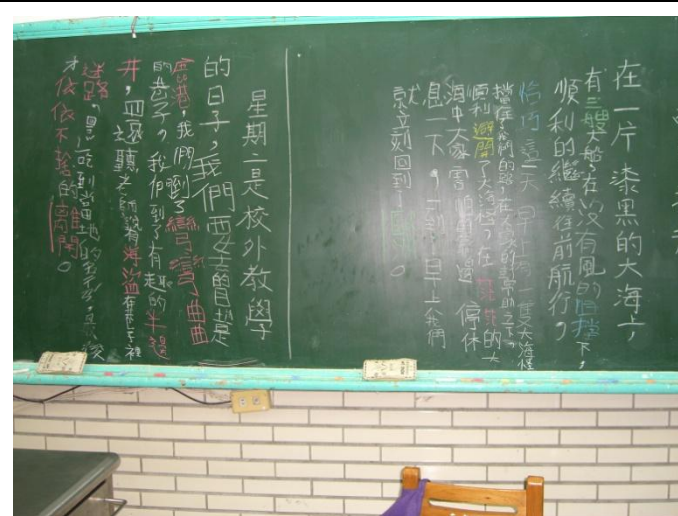 在一片漆黑的大海了,
有三艘大船,在沒有風的阻擋下,
順利的繼續往前航行,
恰巧這一天早上有一隻大海怪
擋住我們的路,在大家的幫助之下,
順利避開了大海怪,在的大
海中大家害怕 停休
息一下,一到早上我們
就立刻回到了。
星期二是校外教學
的日子,我們要去冒險
鹿港,我們到了彎彎曲曲
的巷子,我們到了有趣的半邊
井,四處聽老師說有海盜在巷子裡
迷路,還吃到當地的,最後
才依依不捨的離開。